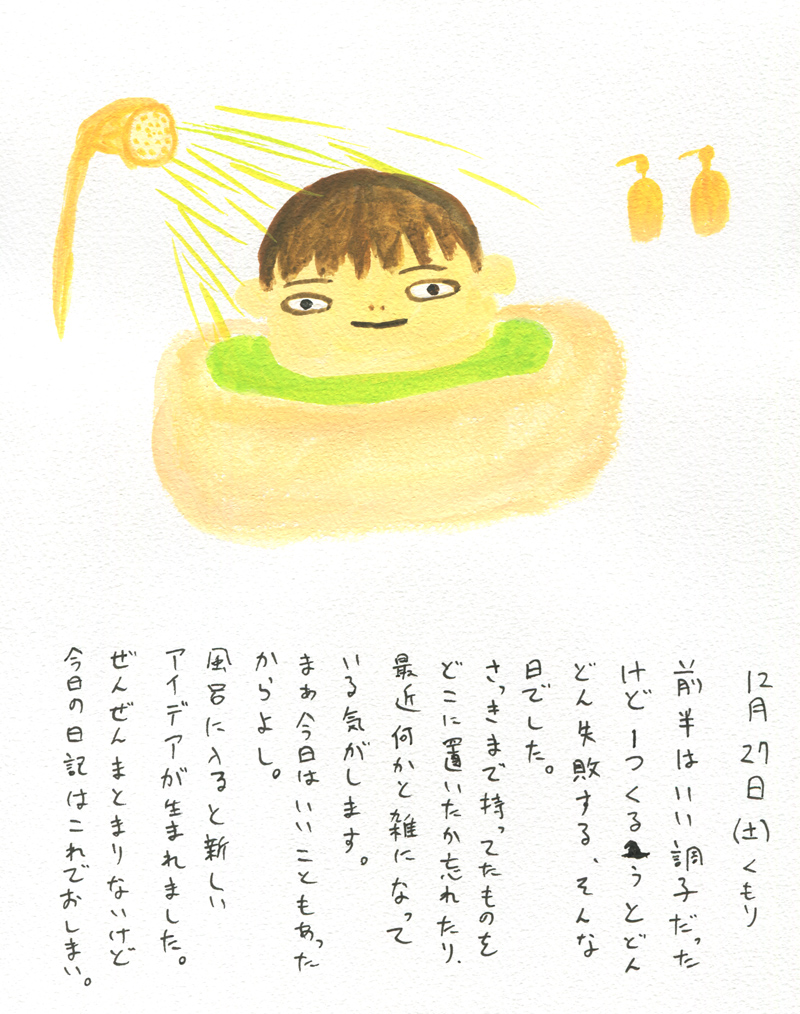 12月27日(土)くもり
前半はいい調子だった
けど1つくるうとどん
どん失敗する、そんな
日でした。
さっきまで持ってたものを
どこに置いたか忘れたり、
最近何かと雑になって
いる気がします。
まぁ今日はいいこともあった
からよし。
風呂に入ると新しい
アイデアが生まれました。
ぜんぜんまとまりないけど
今日の日記はこれでおしまい。